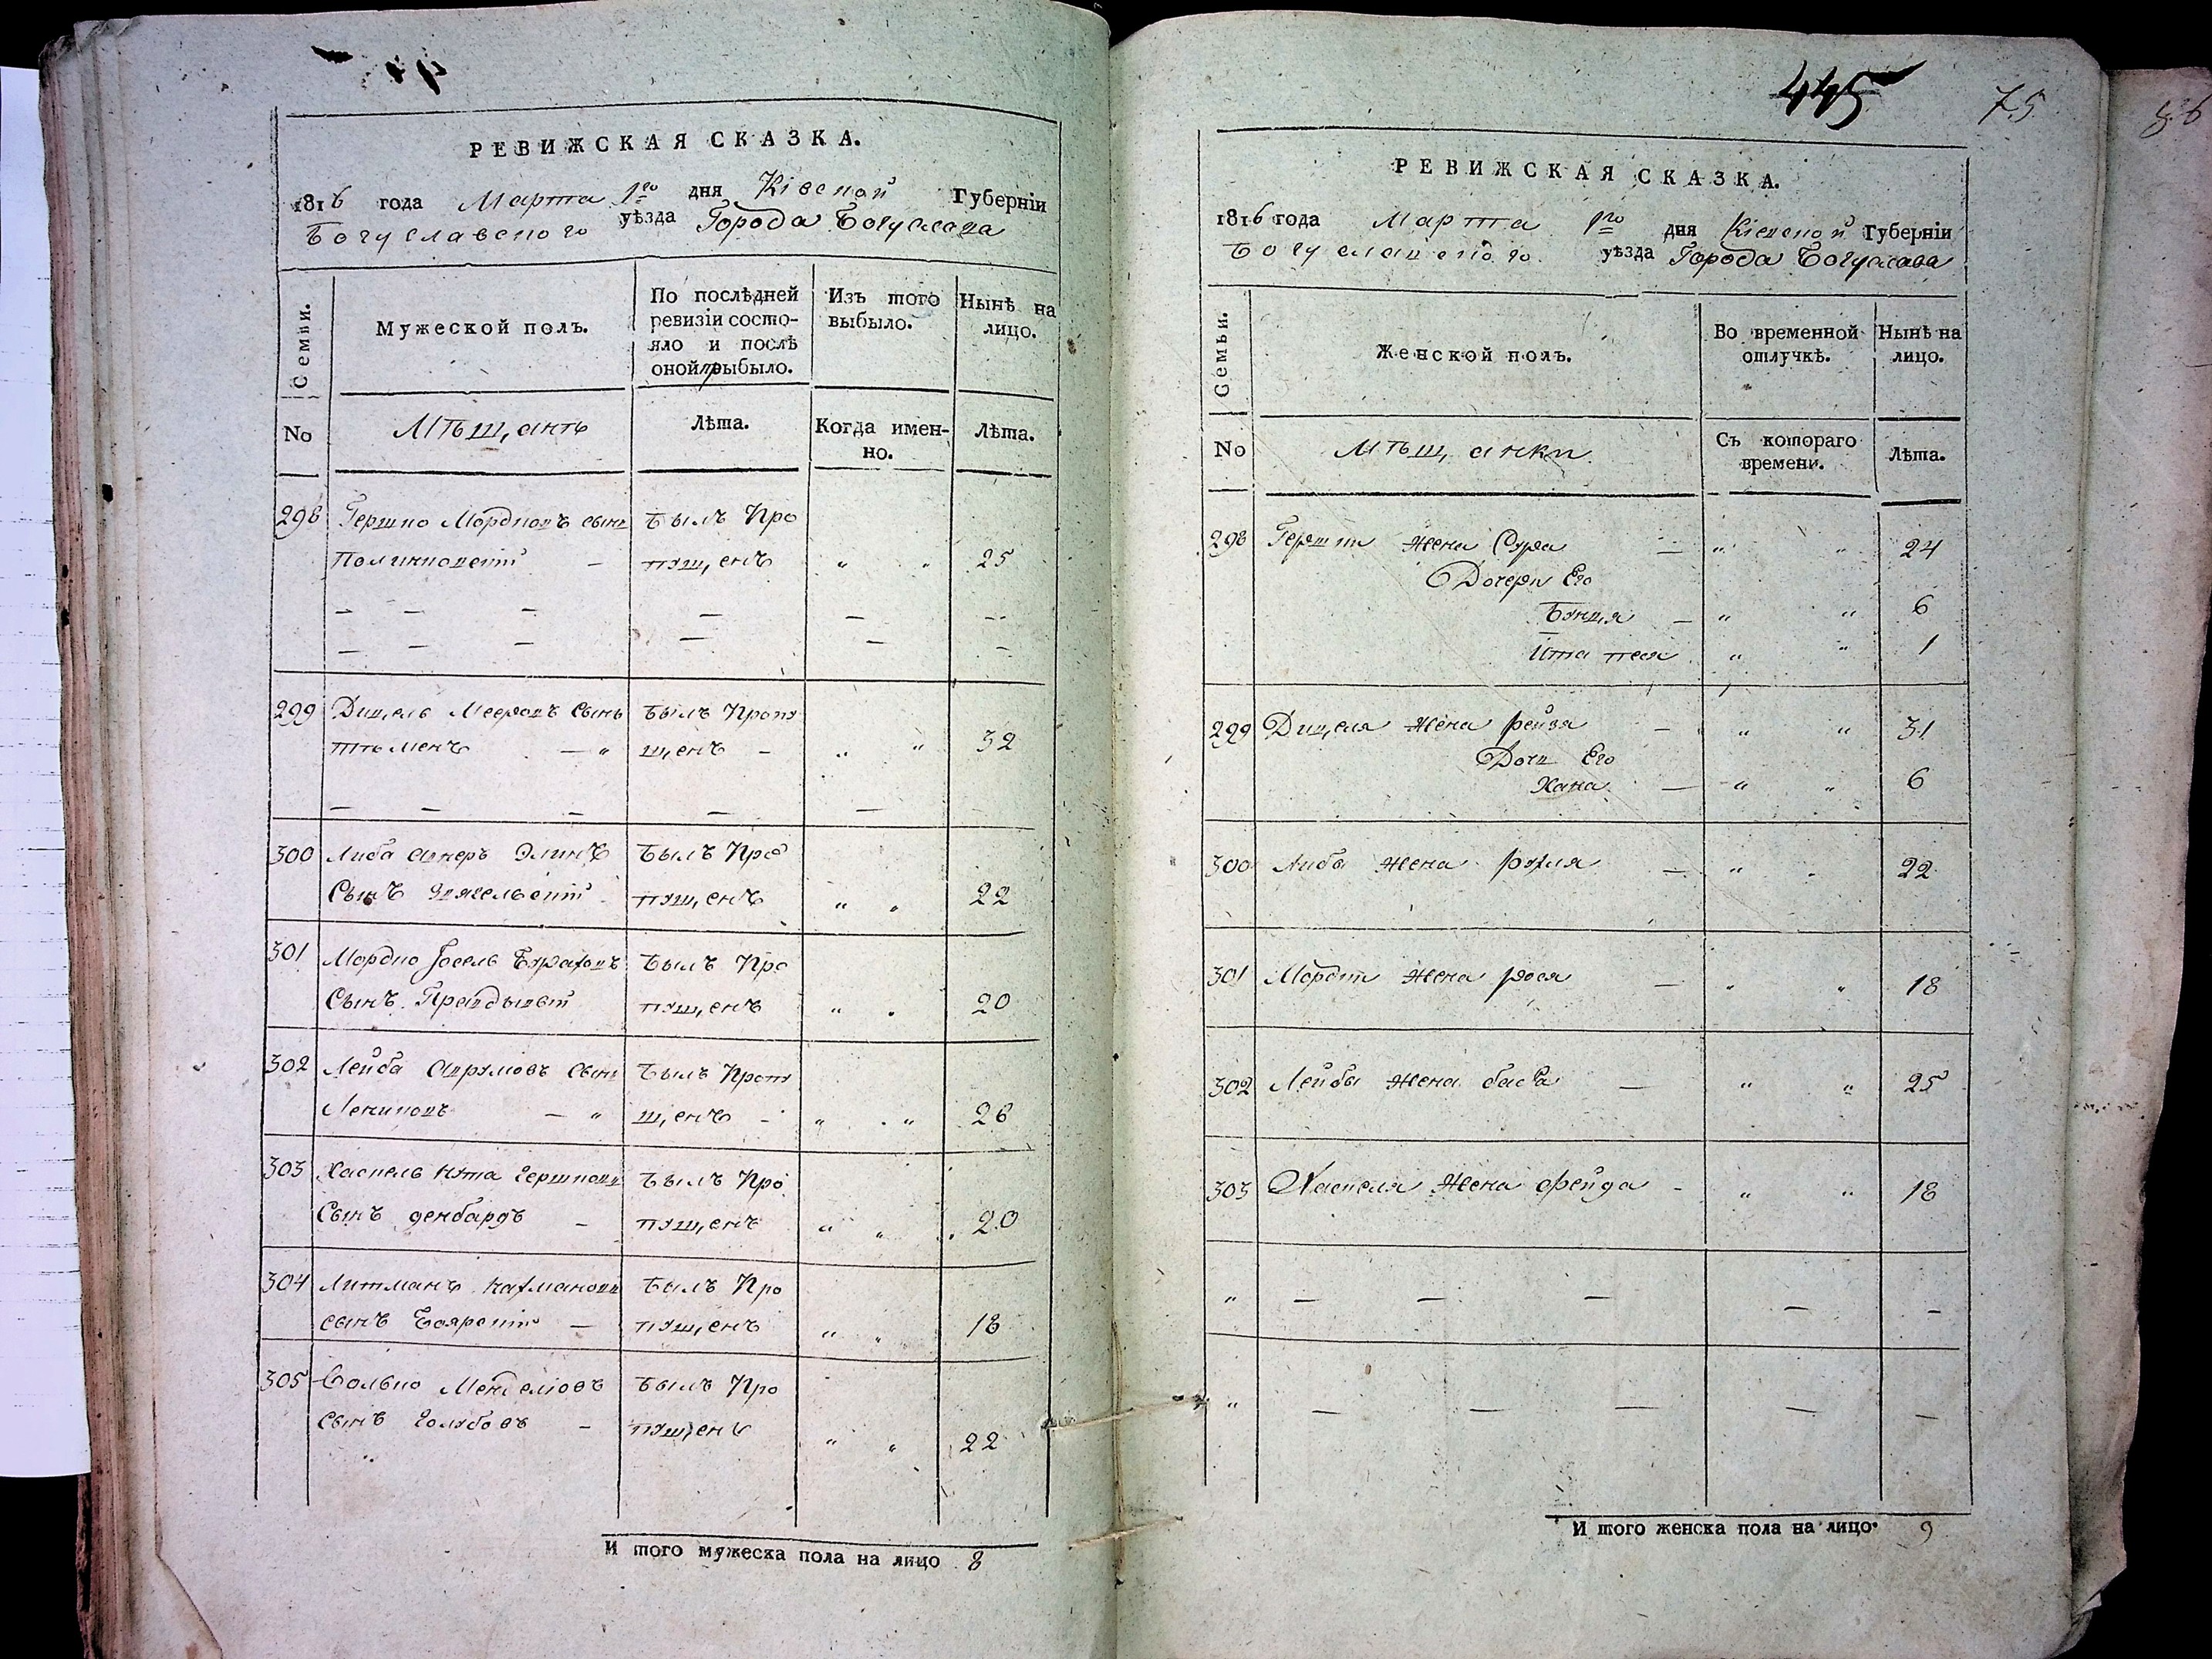 РЕВИЖСКАЯ СКАЗКА.
1816 года Марта 1го дня Кіевской Губерніи
Богуславского уѣзда Города Богуслава
Семьи.
Мужеской полъ.
По послѣдней ревизіи состо-
яло и послѣ
оной прыбыло.
Изъ того
выбыло.
Нынѣ на
лицо.
No
Мѣщанъ
Лѣта.
Когда имен-
но.
Лѣта.
298 Гершко Мордковъ сынъ Былъ Про
пущенъ " " 25
299 Дицель Мееровъ Сынъ Былъ Пропу
щенъ - " " 32
300 Либа Былъ Про
Сынъ пущенъ " " 22
301 Мордко Іосель Былъ Про
Сынъ пущенъ " " 20
302 Лейба Сынъ Былъ Пропу
щенъ - " " 26
303 Хаскель Нута Гершковъ Былъ Про
Сынъ пущенъ " " 20
304 Литманъ Нахмановъ Былъ Про
сынъ Боярскій - пущенъ " " 18
305 Волько Менделіовъ Былъ Про
сынъ Голубовъ - пущенъ " " 22
И того мужеска пола на лицо 8
445
75
86
РЕВИЖСКАЯ СКАЗКА.
1816 года Марта 1го дня Кіевской Губерніи
Богуславского уѣзда Города Богуслава
Семьи.
Женской полъ.
Во временной
отлучкѣ.
Нынѣ на
лицо.
No
Мѣщанки
Съ котораго
времени.
Лѣта.
298 Гершки жена Сура — " " 24
Дочери Его
Бунця — " " 6
Ита " " 1
299 Дицеля жена рейзя — " " 31
Дочь Его
Хана — " " 6
300 Либы жена рухля — " " 22
301 Мордки жена рося — " " 18
302 Лейбы жена бася — " " 25
303 Хаскеля Жена фрейда - " " 18
И того женска пола на лицо. 9